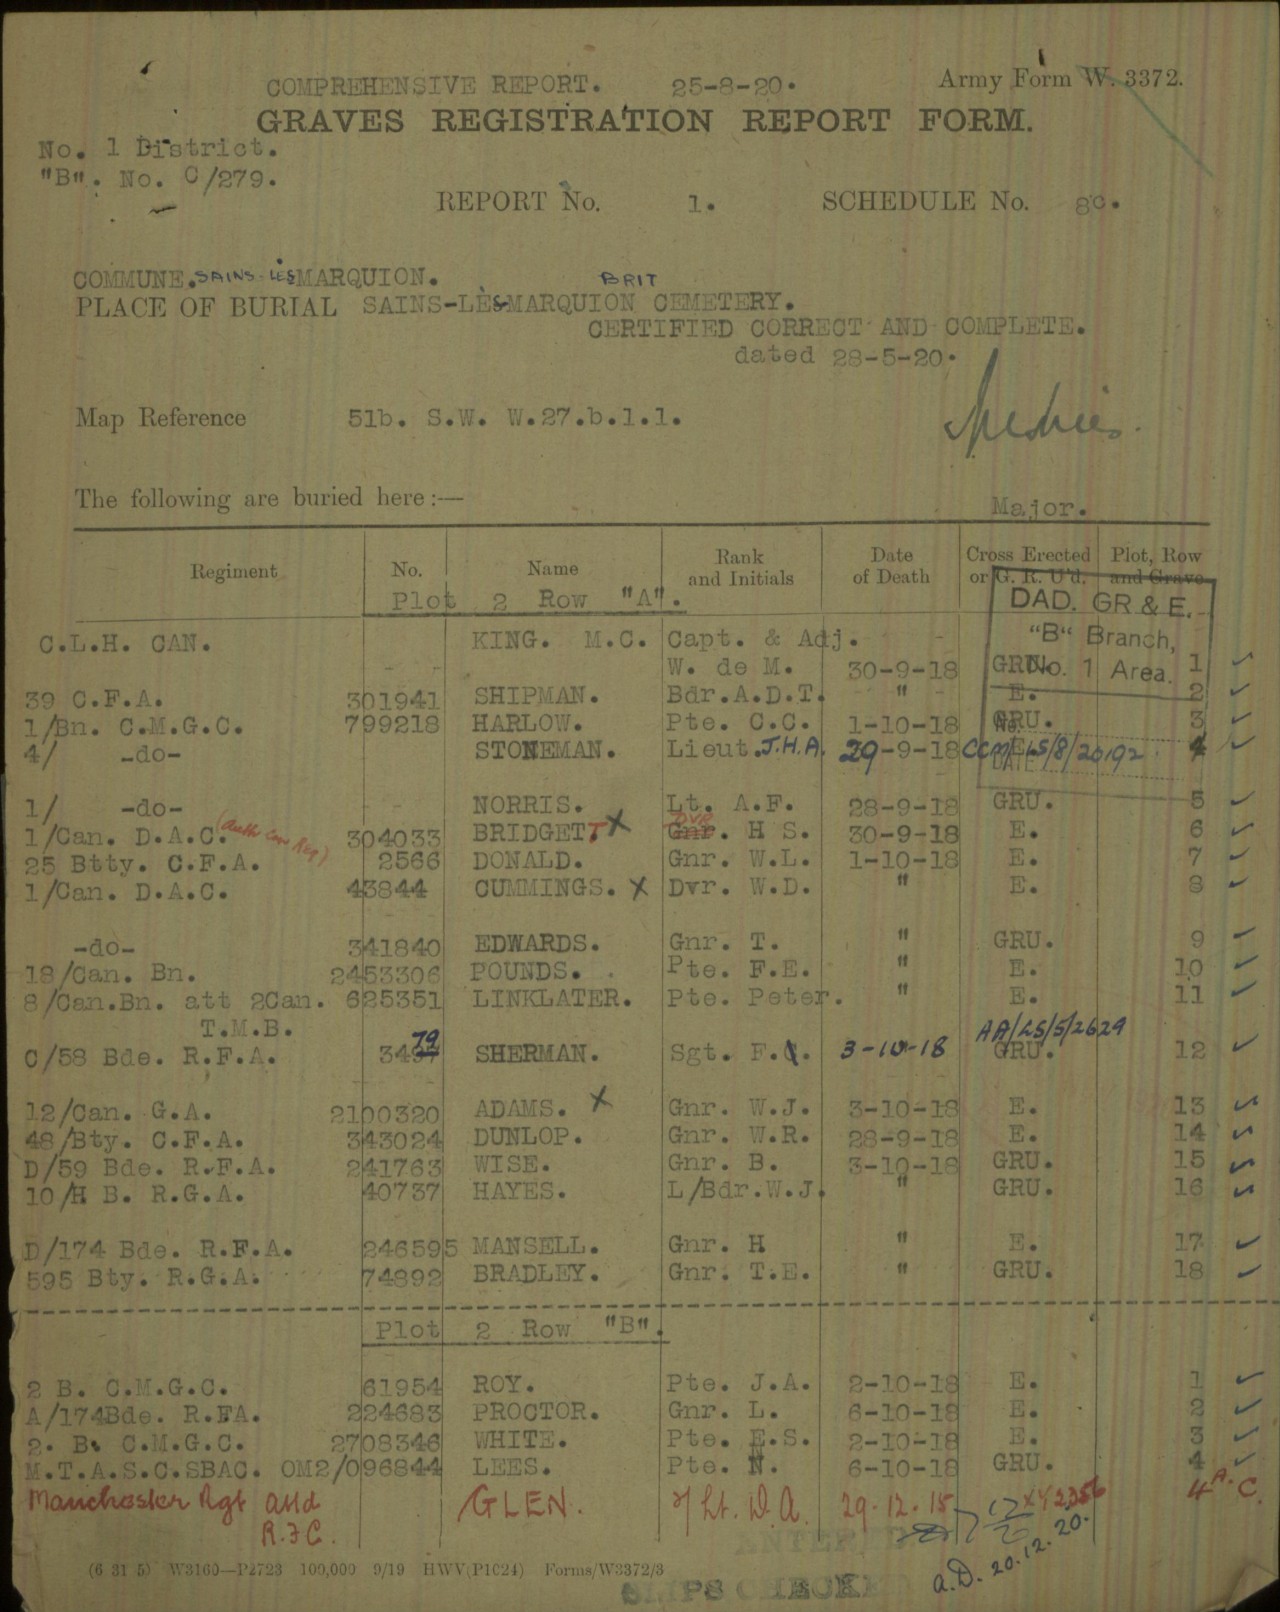 COMPREHENSIVE REPORT. 25-8-20. Army Form W. 3372.
GRAVES REGISTRATION REPORT FORM.
No. 1 District.
"B". No. C/279.
REPORT No. 1. SCHEDULE No. 80.
COMMUNE. SAINS-LES MARQUION. BRIT
PLACE OF BURIAL SAINS-LES MARQUION CEMETERY.
CERTIFIED CORRECT AND COMPLETE.
dated 28-5-20.
Map Reference 51b. S.W. W.27.b.1.1.
The following are buried here:—
Major.
Regiment No. Name Rank and Initials Date of Death Cross Erected or G. R. U'd. Plot, Row and Grave
DAD. GR & E.
"B" Branch,
No. 1 Area.
No.
DATE
Plot 2 Row "A".
C.L.H. CAN. - - KING. M.C. Capt. & Adj. -
W. de M. 30-9-18 GRU. 1
39 C.F.A. 301941 SHIPMAN. Bdr.A.D.T. " E. 2
1/Bn. C.M.G.C. 799218 HARLOW. Pte. C.C. 1-10-18 GRU. 3
4/ -do- STONEMAN. Lieut. J.H.A. 29-9-18 CCM/LS/8/20192 E. 4
1/ -do- - - NORRIS. Lt. A.F. 28-9-18 GRU. 5
1/Can. D.A.C. (Auth Can Reg) 304033 BRIDGETT. X Gnr. DVR H S. 30-9-18 E. 6
25 Btty. C.F.A. 2566 DONALD. Gnr. W.L. 1-10-18 E. 7
1/Can. D.A.C. 43844 CUMMINGS. X Dvr. W.D. " E. 8
-do- 341840 EDWARDS. Gnr. T. " GRU. 9
18/Can. Bn. 2453306 POUNDS. Pte. F.E. " E. 10
8/Can.Bn. att 2Can. 625351 LINKLATER. Pte. Peter. " E. 11
T.M.B. AA/LS/5/2629
C/58 Bde. R.F.A. 3497 79 SHERMAN. Sgt. F. 3-10-18 GRU. 12
12/Can. G.A. 2100320 ADAMS. X Gnr. W.J. 3-10-18 E. 13
48/Bty. C.F.A. 343024 DUNLOP. Gnr. W.R. 28-9-18 E. 14
D/59 Bde. R.F.A. 241763 WISE. Gnr. B. 3-10-18 GRU. 15
10/H B. R.G.A. 40737 HAYES. L/Bdr.W.J. " GRU. 16
D/174 Bde. R.F.A. 246595 MANSELL. Gnr. H " E. 17
595 Bty. R.G.A. 74892 BRADLEY. Gnr. T.E. " GRU. 18
Plot 2 Row "B".
2 B. C.M.G.C. 61954 ROY. Pte. J.A. 2-10-18 E. 1
A/174Bde. R.FA. 224683 PROCTOR. Gnr. L. 6-10-18 E. 2
2. B. C.M.G.C. 2708346 WHITE. Pte. E.S. 2-10-18 E. 3
M.T.A.S.C.SBAC. OM2/096844 LEES. Pte. N. 6-10-18 GRU. 4
Manchester Rgt attd GLEN. 2/Lt. D.A. 29.12.15 XY2356 4A. C.
R.F.C.
A.D. 20.12.20.
(6 31 5) W3160—P2723 100,000 9/19 HWV(P1024) Forms/W3372/3
SLIPS CHECKED